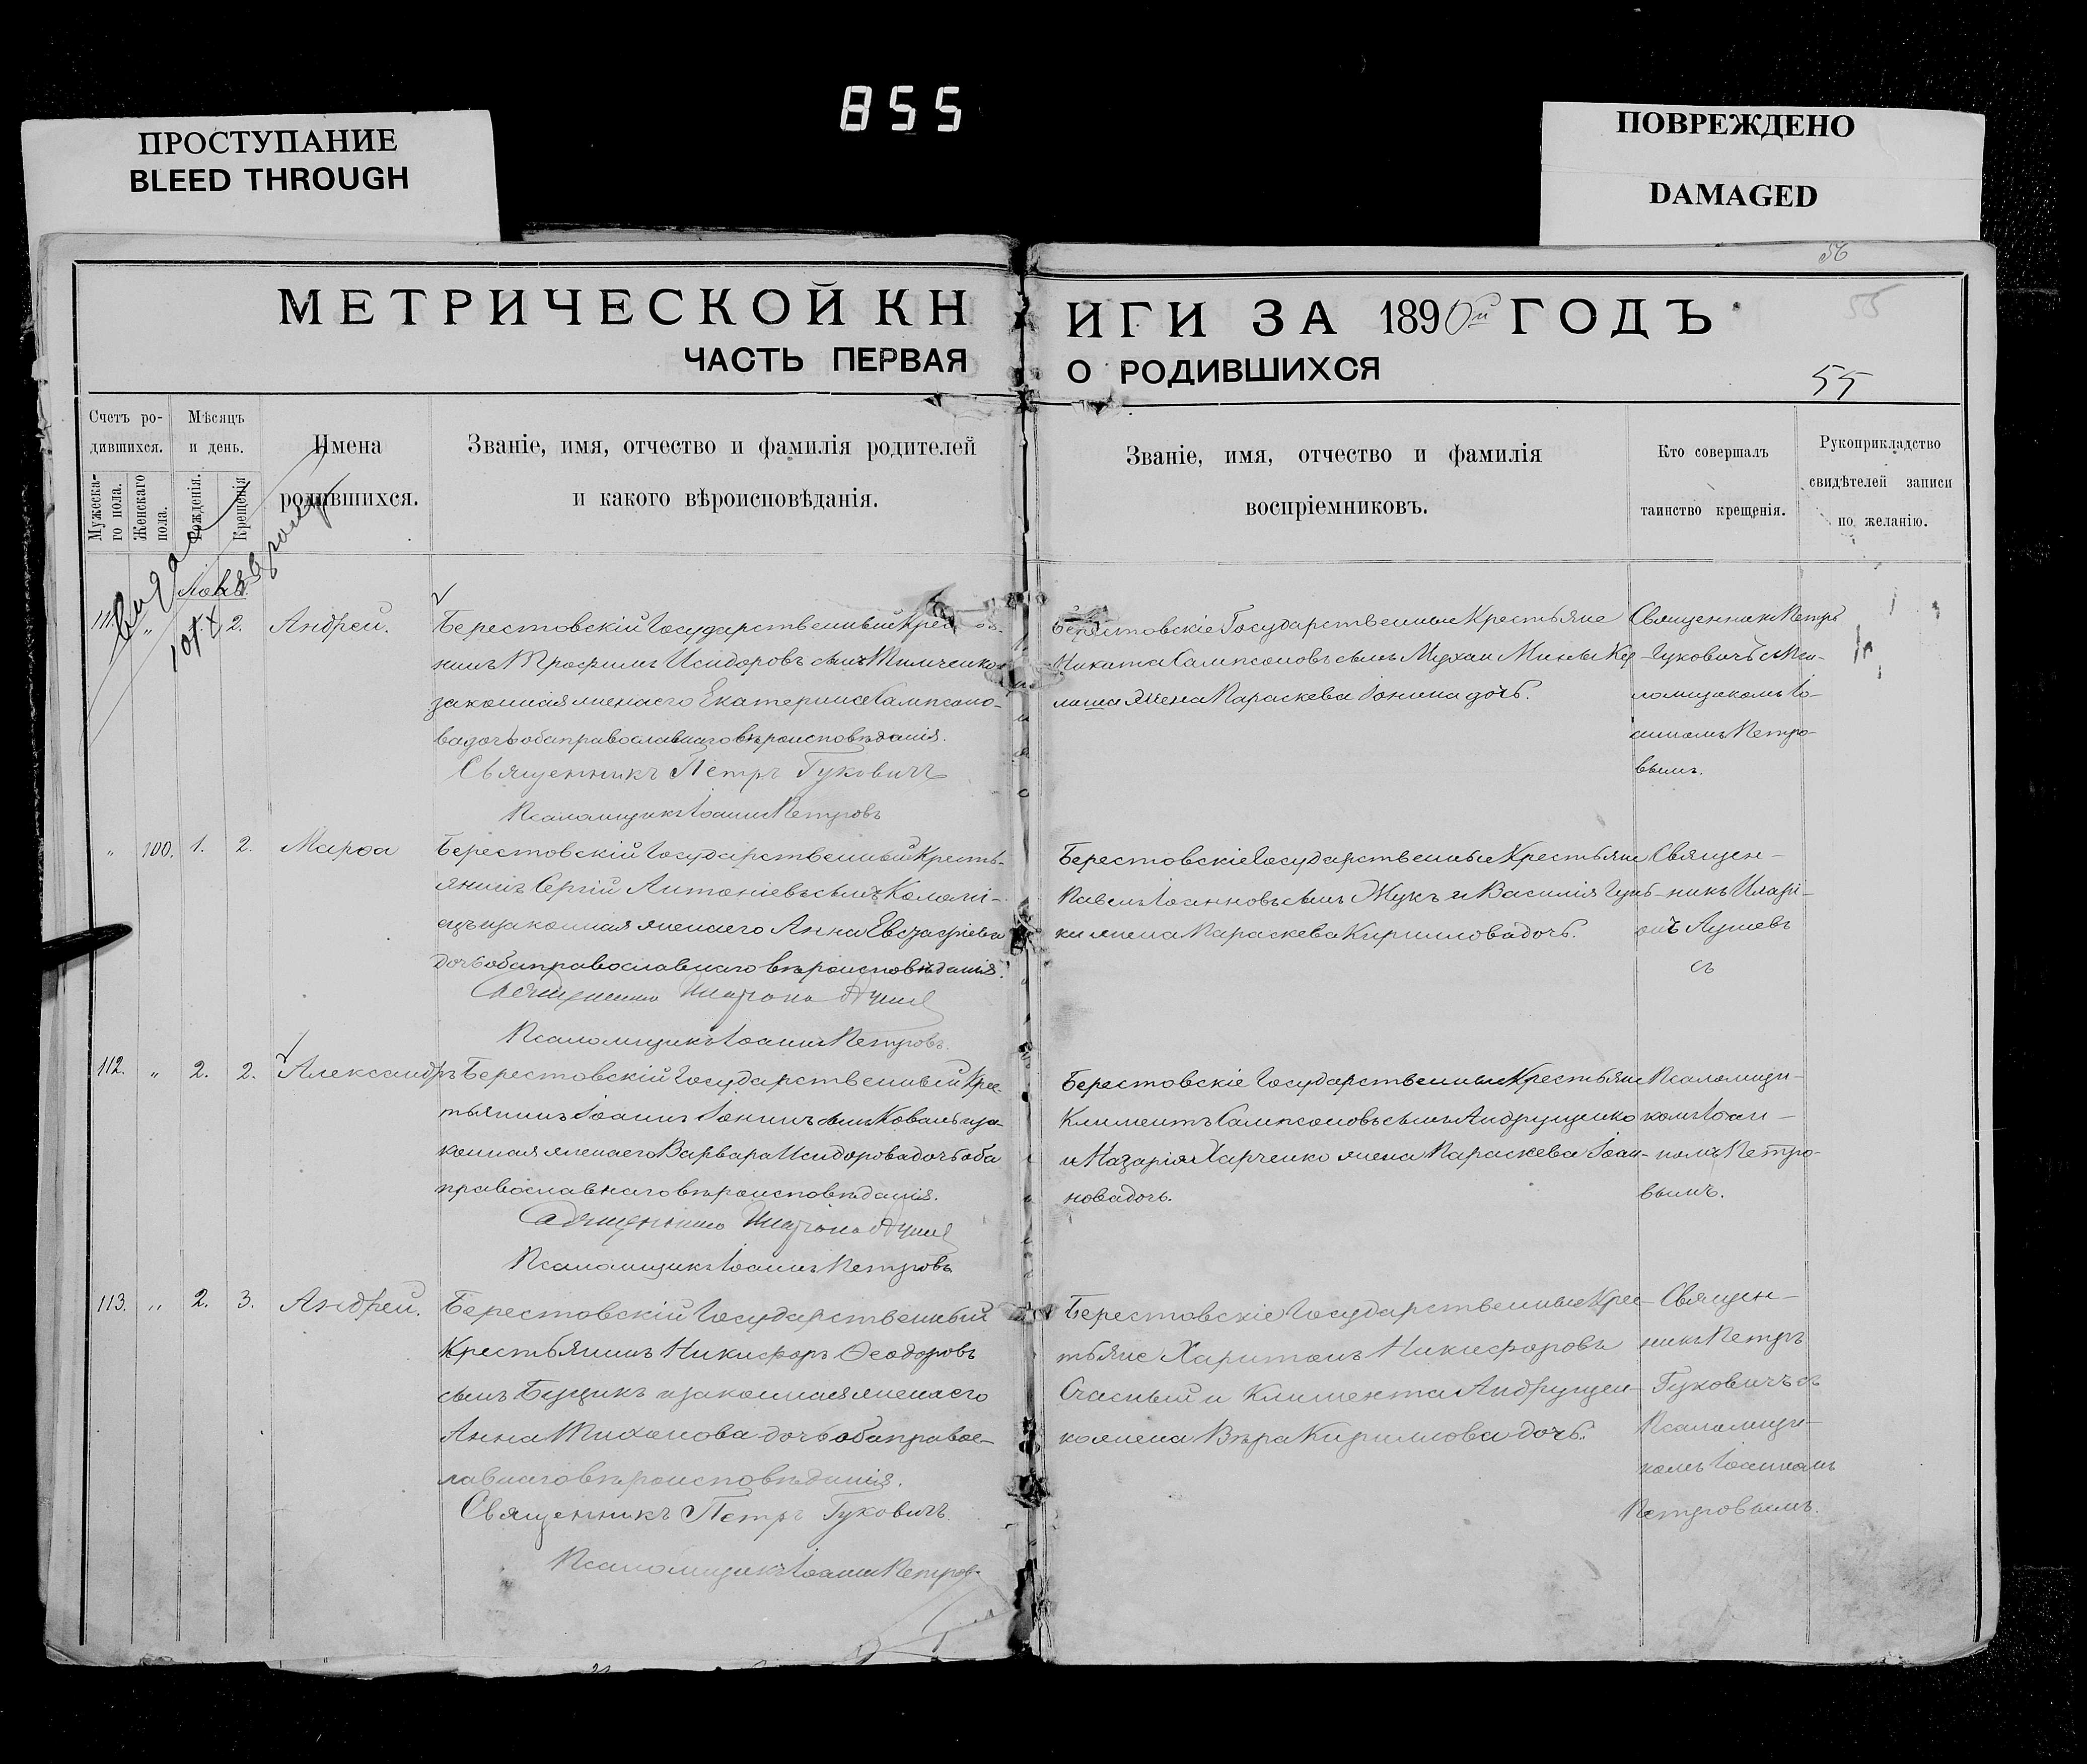 855
ПРОСТУПАНИЕ
BLEED THROUGH
ПОВРЕЖДЕНО
DAMAGED
56
55
МЕТРИЧЕСКОЙ КН
ИГИ ЗА 1890й ГОДЪ
ЧАСТЬ ПЕРВАЯ
О РОДИВШИХСЯ
55
Счетъ ро-
дившихся.
Мужеска-
го пола.
Женскаго
пола.
Мѣсяцъ
и день.
Рожденія.
Крещенія
Имена
родившихся.
Званіе, имя, отчество и фамилія родителей
и какого вѣроисповѣданія.
Званіе, имя, отчество и фамилія
воспріемниковъ.
Кто совершалъ
таинство крещенія.
Рукоприкладство
свидѣтелей записи
по желанію.
111 " 2. Андрей.
Берестовскій Государственный Крестья-
нинъ Трофимъ Исидоровъ сынъ
законная жена его Екатерина Сампсоно-
ва дочь оба православнаго вѣроисповѣданія.
Священникъ Петръ Гуковичъ
Псаломщикъ Іоаннъ Петровъ
Берестовскіе Государственные Крестьяне
Никита Сампсоновъ сынъ
жена Параскева Іонина дочь.
Священник Петръ
Гуковичъ с Пса-
ломщикомъ Іо-
анномъ Петро-
вымъ.
" 100. 1. 2. Марѳа
Берестовскій Государственный Кресть-
янинъ Сергій Антоніевъ сынъ Коломі-
ецъ и законная жена его Анна Евстафіева
дочь оба православнаго вѣроисповѣданія.
Псаломщикъ Іоаннъ Петровъ.
Берестовскіе Государственные Крестьяне
Павелъ Іоанновъ сынъ Жукъ и Василія
жена Параскева Кириллова дочь.
Священ-
никъ Иларі-
онъ
съ
112. " 2. 2. Александръ
Берестовскій Государственный Крес-
тьянинъ Іоаннъ Іонинъ сынъ Коваль и за-
конная жена его Варвара Исидорова дочь оба
православнаго вѣроисповѣданія.
Псаломщикъ Іоаннъ Петровъ
Берестовскіе Государственные Крестьяне
Климентъ Сампсоновъ сынъ Андрущенко
и Назарія Харченко жена Параскева Іоан-
нова дочь.
Псаломщи-
комъ Іоан-
номъ Петро-
вымъ.
113. " 2. 3. Андрей.
Берестовскій Государственный
Крестьянинъ Никифоръ Ѳеодоровъ
сынъ Буцикъ и законная жена его
Анна Тихонова дочь оба правос-
лавнаго вѣроисповѣданія.
Священникъ Петръ Гуковичъ
Псаломщикъ Іоаннъ Петровъ
Берестовскіе Государственные Крес-
тьяне Харитонъ Никифоровъ
Счасный и Климента Андрущен-
ко жена Вѣра Кириллова дочь.
Священ-
никъ Петръ
Гуковичъ съ
Псаломщи-
комъ Іоанномъ
Петровымъ.